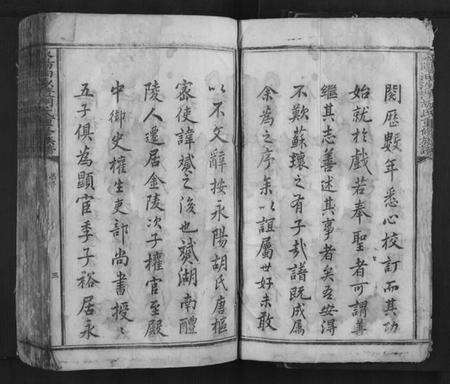 閱歷數年悉心校訂而其功
始就於戲若奉聖者可謂善
繼其志善述其事者矣吾安得
不歎蘇瓌之有子哉譜既成屬
余為之序余以誼屬世好未敢
以不文辭按永陽胡氏唐樞
密使諱贇之後也贇湖南醴
陵人遷居金陵次子權官至殿
中御史權生吏部尚書授〻
五子俱為顯宦季子裕居永
三